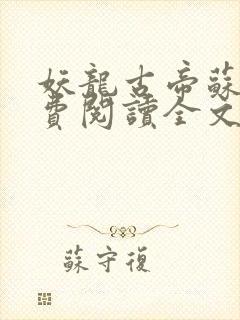 妖龍古帝蘇
費閱讀全文
蘇守復